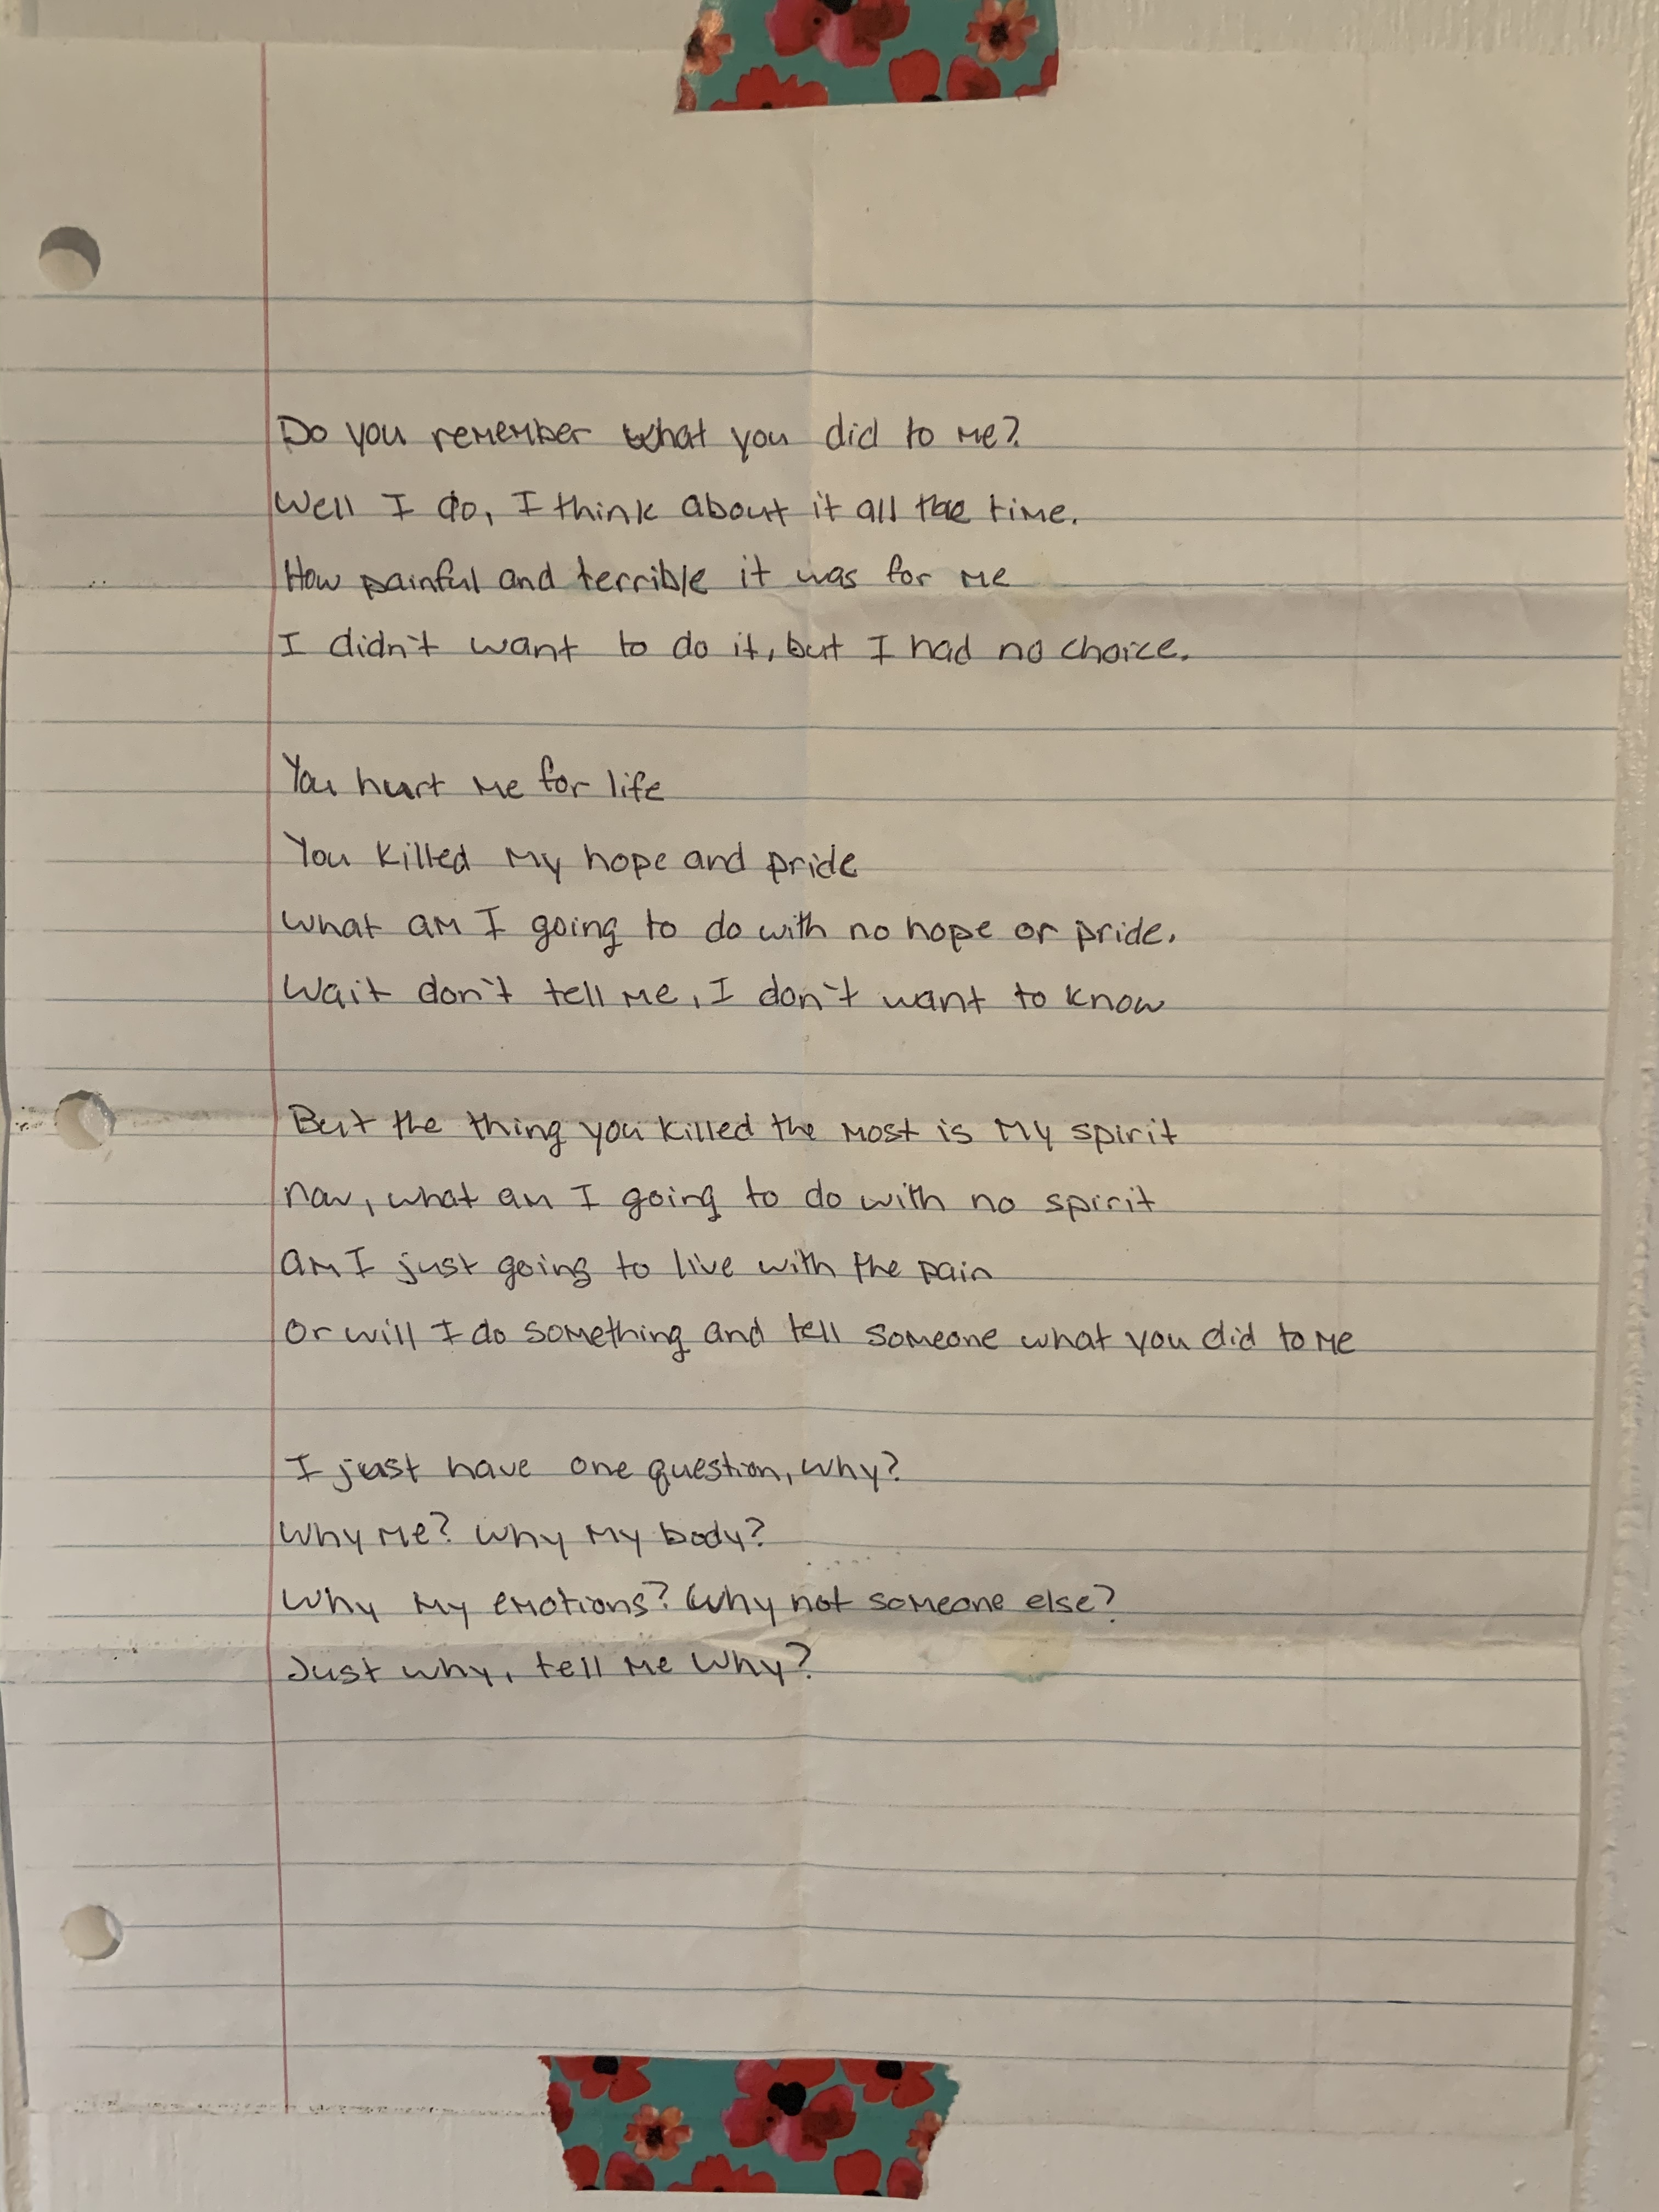 Do you remember what you did to me?
Well I do, I think about it all the time.
How painful and terrible it was for me
I didn't want to do it, but I had no choice.
You hurt me for life
You killed my hope and pride
What am I going to do with no hope or pride.
Wait don't tell me, I don't want to know
But the thing you killed the most is my spirit
now, what am I going to do with no spirit
am I just going to live with the pain
Or will I do something and tell someone what you did to me
I just have one question, why?
Why me? Why my body?
Why my emotions? Why not someone else?
Just why, tell me why?